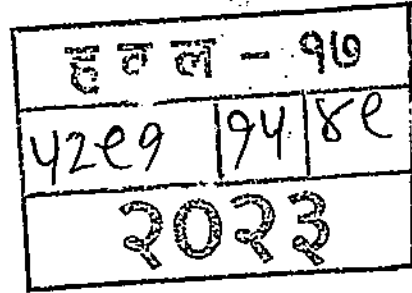 ह व ल - १७
५२९१ १५ ४९
२०२३